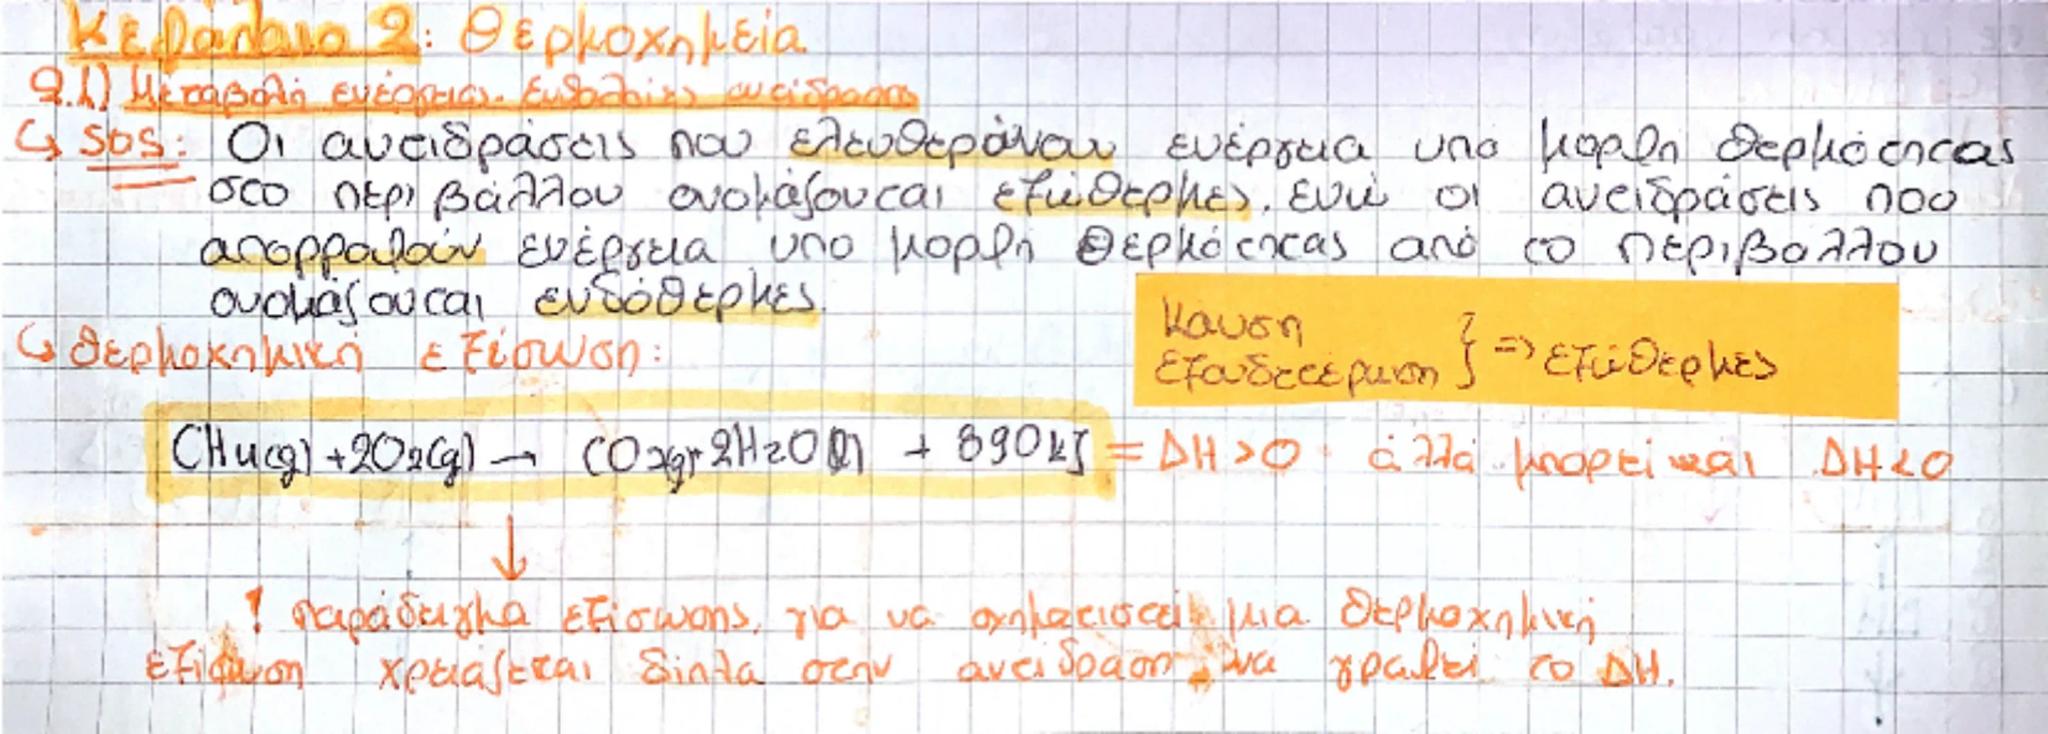 Κεφάλαιο 2: Θερμοχημεία
2.1) Μεταβολή ενέργειας. Ενθαλπίες αντίδρασης
↳ SOS: Οι αντιδράσεις που ελευθερώνουν ενέργεια υπό μορφή θερμότητας
στο περιβάλλον ονομάζονται εξώθερμες, ενώ οι αντιδράσεις που
απορροφούν ενέργεια υπο μορφή θερμότητας από το περιβαλλον
ονομάζονται ενδόθερμες.
Καυση
εξουδετέρωση } => εξώθερμες
↳ θερμοχημική εξίσωση:
CH4(g) + 2O2(g) → CO2(g) + 2H2O(l) + 890kJ = ΔH>0 άλλά μπορεί και ΔH<0
↓
! παράδειγμα εξίσωσης, για να σχηματιστεί μια θερμοχημική
εξίσωση χρειάζεται δίπλα στην αντίδραση να γραφεί το ΔH.